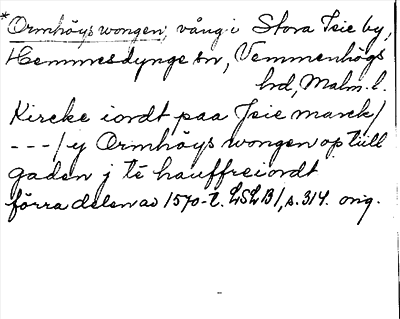 *Ormhöys wongen, vång i Stora Isie by,
Hemmesdynge sn, Vemmenhögs
hd, Malm. l.
Kircke iordt paa Isie marck/
---/ ij Ormhöys wongen op till
gaden j te hauffreiordt
förra delen av 1570-t. LSLB1, s. 314. orig.